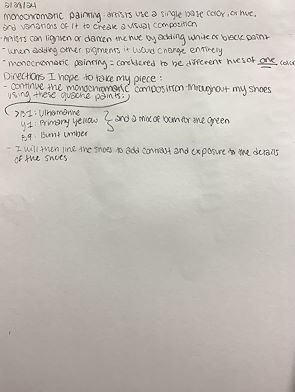 monochromatic painting: artists use a single base color, or hue,
and variations of it to create a visual composition
- Artists can lighten or darken the hue by adding white or black paint
- when adding other pigments it would change entirely
- monochromatic painting = considered to be different hues of one color
Directions I hope to take my piece:
- continue the monochromatic composition throughout my shoes
using these guache paints:
: Ultramarine
y1: Primary yellow } and a mix of both for the green
: Burnt umber
- I will then line the shoes to add contrast and exposure to the details
of the shoes